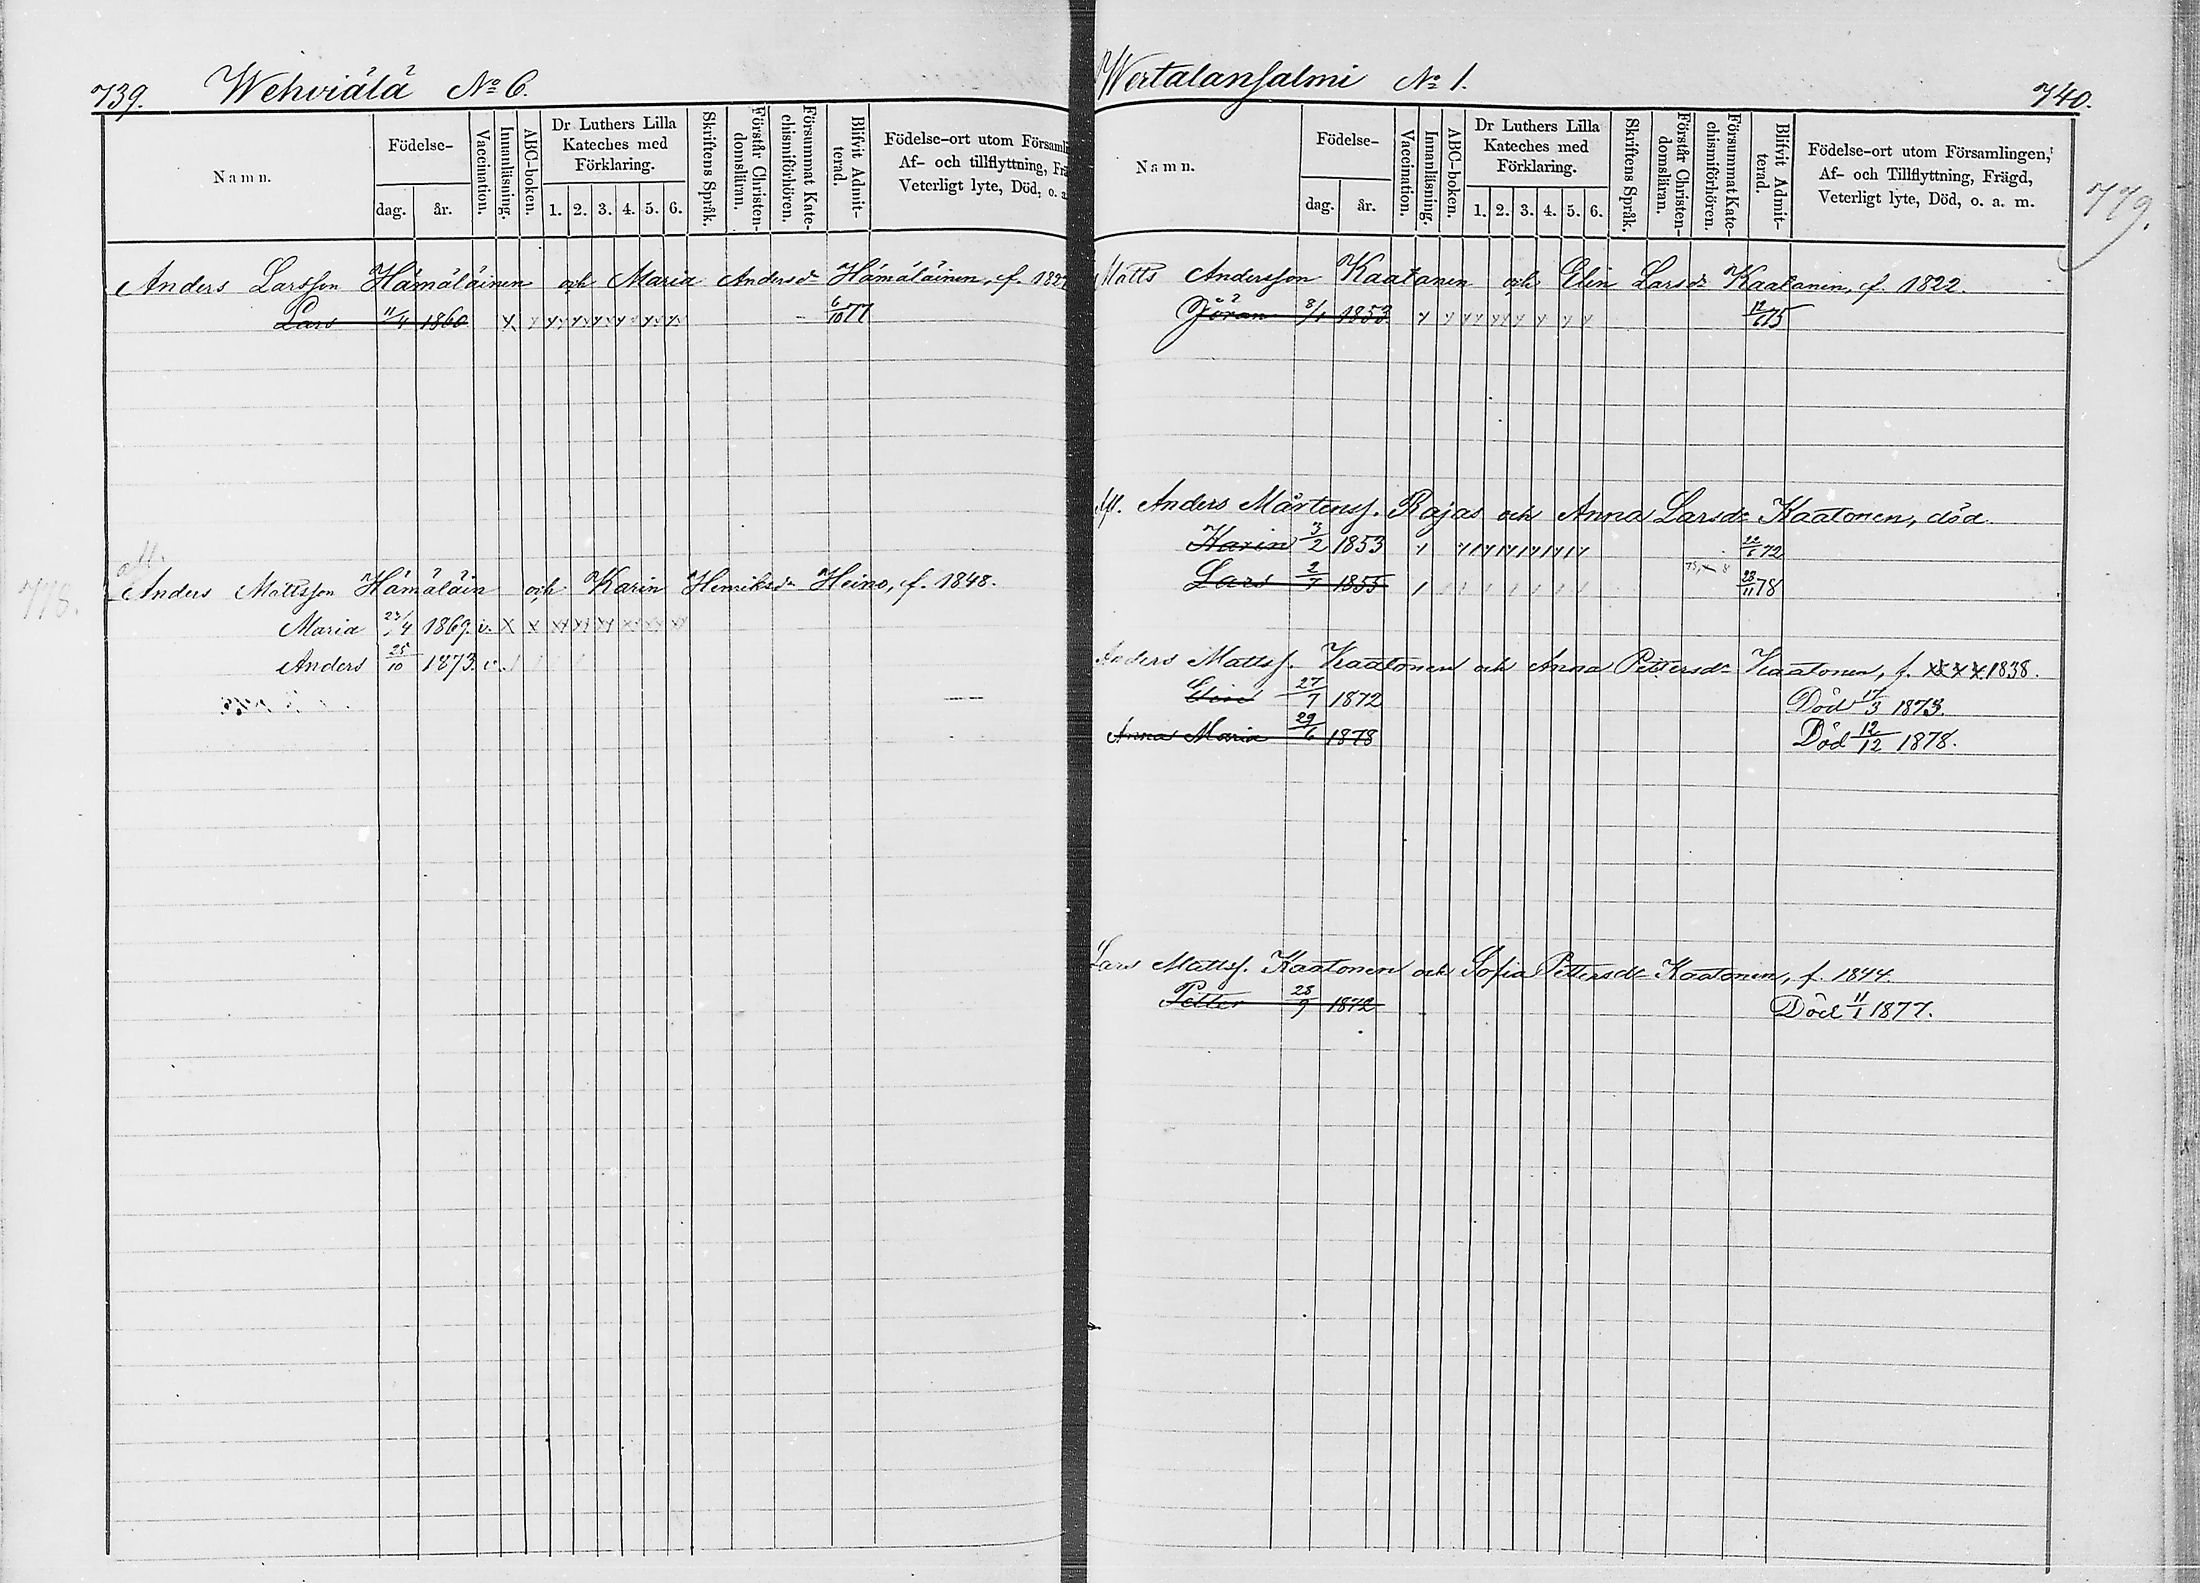 739. Wehviälä No 6.
Namn.
Födelse-
dag. år.
Vaccination.
Innanläsning.
ABC-boken.
Dr Luthers Lilla
Kateches med
Förklaring.
1. 2. 3. 4. 5. 6.
Skriftens Språk.
Förstår Christen-
domsläran.
Försummat Kate-
chismiförhören.
Blifvit Admit-
terad.
Födelse-ort utom Församli
Af- och tillflyttning, Frä
Veterligt lyte, Död, o. a.
Anders Larsson Hämäläinen och Maria Andersdr Hämäläinen, f. 182
Lars 11/4 1860 6/10 77
778.
Anders Mattsson Hämäläin och Karin Henriksdr Heino, f. 1848.
Maria 23/4 1869. v.
Anders 25/10 1873. v.
Wertalansalmi No 1. 740.
779.
Namn.
Födelse-
dag. år.
Vaccination.
Innanläsning.
ABC-boken.
Dr Luthers Lilla
Kateches med
Förklaring.
1. 2. 3. 4. 5. 6.
Skriftens Språk.
Förstår Christen-
domsläran.
Försummat Kate-
chismiförhören.
Blifvit Admit-
terad.
Födelse-ort utom Församlingen,
Af- och Tillflyttning, Frägd,
Veterligt lyte, Död, o. a. m.
Matts Andersson Kaatanen och Elin Larsdr Kaatanen, f. 1822.
Jöran 8/1 1853 12/6 75
Anders Mårtenss. Rajas och Anna Larsdr Kaatonen, död.
Karin 3/2 1853 72
Lars 2/7 1855 23/11 78
Anders Mattss. Kaatonen och Anna Pettersdr Kaatonen, f. 1838.
Elin 27/7 1872 Död 17/3 1873.
Anna Maria 29/6 1878 Död 12/12 1878.
Lars Mattss. Kaatonen och Sofia Pettersdr Kaatonen, f. 1844.
Petter 28/9 1872 Död 11/1 1877.